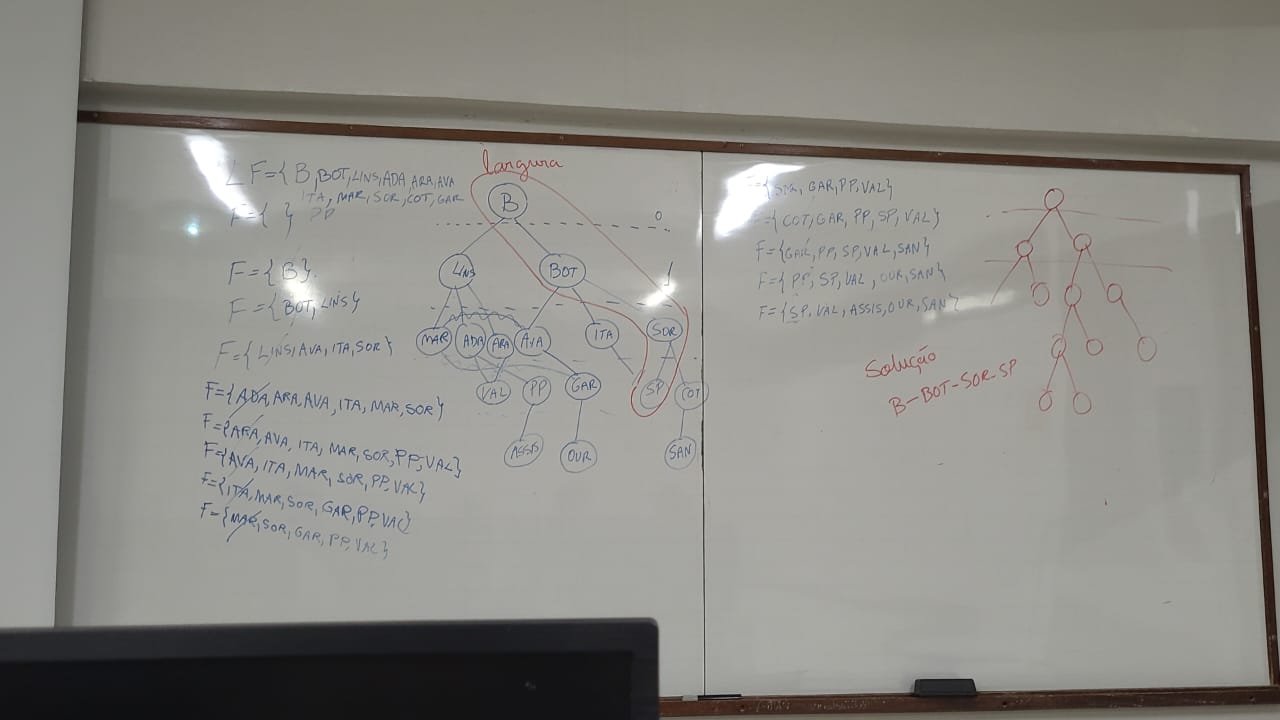 LF={B,BOT,LINS,ADA,ARA,AVA
ITA, MAR, SOR, COT, GAR
PP
F={ }
F={B}
F={BOT,LINS}
F={LINS,AVA,ITA,SOR}
F={ADA,ARA,AVA,ITA,MAR,SOR}
F={ARA,AVA,ITA,MAR,SOR,PP,VAL}
F={AVA,ITA,MAR,SOR,PP,VAL}
F={ITA,MAR,SOR,GAR,PP,VAL}
F={MAR,SOR,GAR,PP,VAL}
largura
B
0
LINS
BOT
1
MAR
ADA
ARA
AVA
ITA
SOR
VAL
PP
GAR
SP
COT
ASSIS
OUR
SAN
F={SOR, GAR,PP,VAL}
F={COT,GAR, PP, SP, VAL}
F={GAR,PP,SP,VAL,SAN}
F={PP,SP,VAL,OUR,SAN}
F={SP,VAL,ASSIS,OUR,SAN}
Solução
B-BOT-SOR-SP